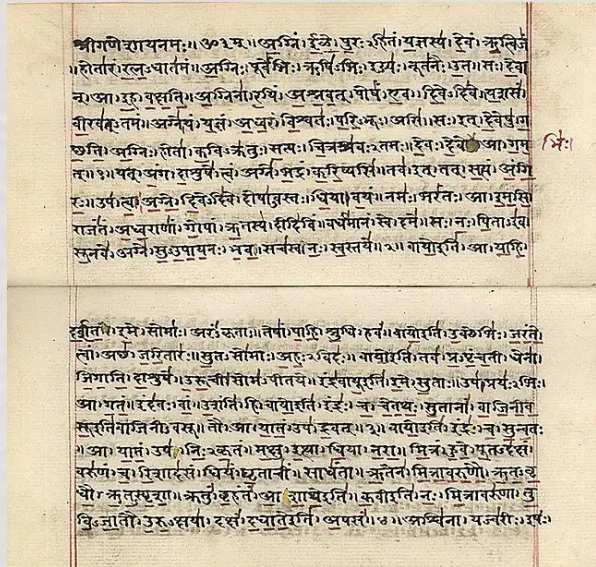 श्रीगणेशायनमः॥ॐ३म्॥अग्निं।ईळे।पुरःऽहितं।यज्ञस्य।देवं।ऋत्विजं
।होतारं।रत्नऽधातमं॥अग्निः।पूर्वेभिः।ऋषिऽभिः।ईड्यः।नूतनैः।उत।सः।देवा
न्।आ।इह।वक्षति॥अग्निना।रयिं।अश्नवत्।पोषं।एव।दिवेऽदिवे।यशसं
वीरवत्ऽतमं॥अग्ने।यं।यज्ञं।अध्वरं।विश्वतः।परिऽभूः।असि।सः।इत्।देवेषु।ग
छति॥अग्निः।होता।कविऽक्रतुः।सत्यः।चित्रश्रवःऽतमः।देवः।देवे।आ।गम
भिः।
त्॥१॥यत्।अंग।दाशुषे।त्वं।अग्ने।भद्रं।करिष्यसि।तव।इत्।तत्।सत्यं।अंगि
रः॥उप।त्वा।अग्ने।दिवेऽदिवे।दोषाऽवस्तः।धिया।वयं।नमः।भरंतः।आ।इमसि
राजंतं।अध्वराणां।गोपां।ऋतस्य।दीदिविं।वर्धमानं।स्वे।दमे॥सः।नः।पिताऽइव
सूनवे।अग्ने।सुऽउपायनः।भव।सचस्व।नः।स्वस्तये॥२॥वायोइति।आ।याहि।
इमे।सोमाः।अरंऽकृताः।तेषां।पाहि।श्रुधि।हवं॥वायोइति।उक्थेभिः।जरंते
त्वां।अछ।जरितारः।सुतऽसोमाः।अहःऽविदः॥वायोइति।तव।प्रऽपृंचती।धेना
जिगाति।दाशुषे।उरूची।सोमऽपीतये॥इंद्रवायूइति।इमे।सुताः।उप।प्रयःऽभिः।
आ।गतं।इंदवः।वां।उशंति।हि॥वायोइति।इंद्रः।च।चेतथः।सुतानां।वाजिनीव
सूइतिवाजिनीऽवसू।तौ।आ।यातं।उप।द्रवत्॥३॥वायोइति।इंद्रः।च।सुन्वतः
।आ।यातं।उप।निःऽकृतं।मक्षु।इत्था।धिया।नरा॥मित्रं।हुवे।पूतऽदक्षं
वरुणं।च।रिशादसं।धियं।घृताचीं।साधंता॥ऋतेन।मित्रावरुणौ।ऋतऽवृ
धौ।ऋतऽस्पृशा।क्रतुं।बृहंतं।आशाथेइति॥कवीइति।नः।मित्रावरुणा।तु
विऽजातौ।उरुऽक्षया।दक्षं।दधातेइति।अपसं॥४॥अश्विना।यज्वरीः।इषः।